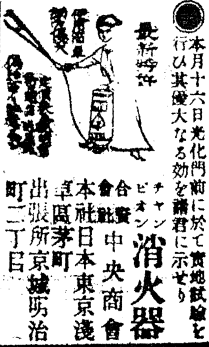 本月十六日光化門前に於て實地試驗を
行ひ其優大なる効を諸君に示せり
最新特許
チャンピオン
消火器
合資會社
中央商會
本社日本東京淺
草區茅町
出張所京城明治
町二丁目